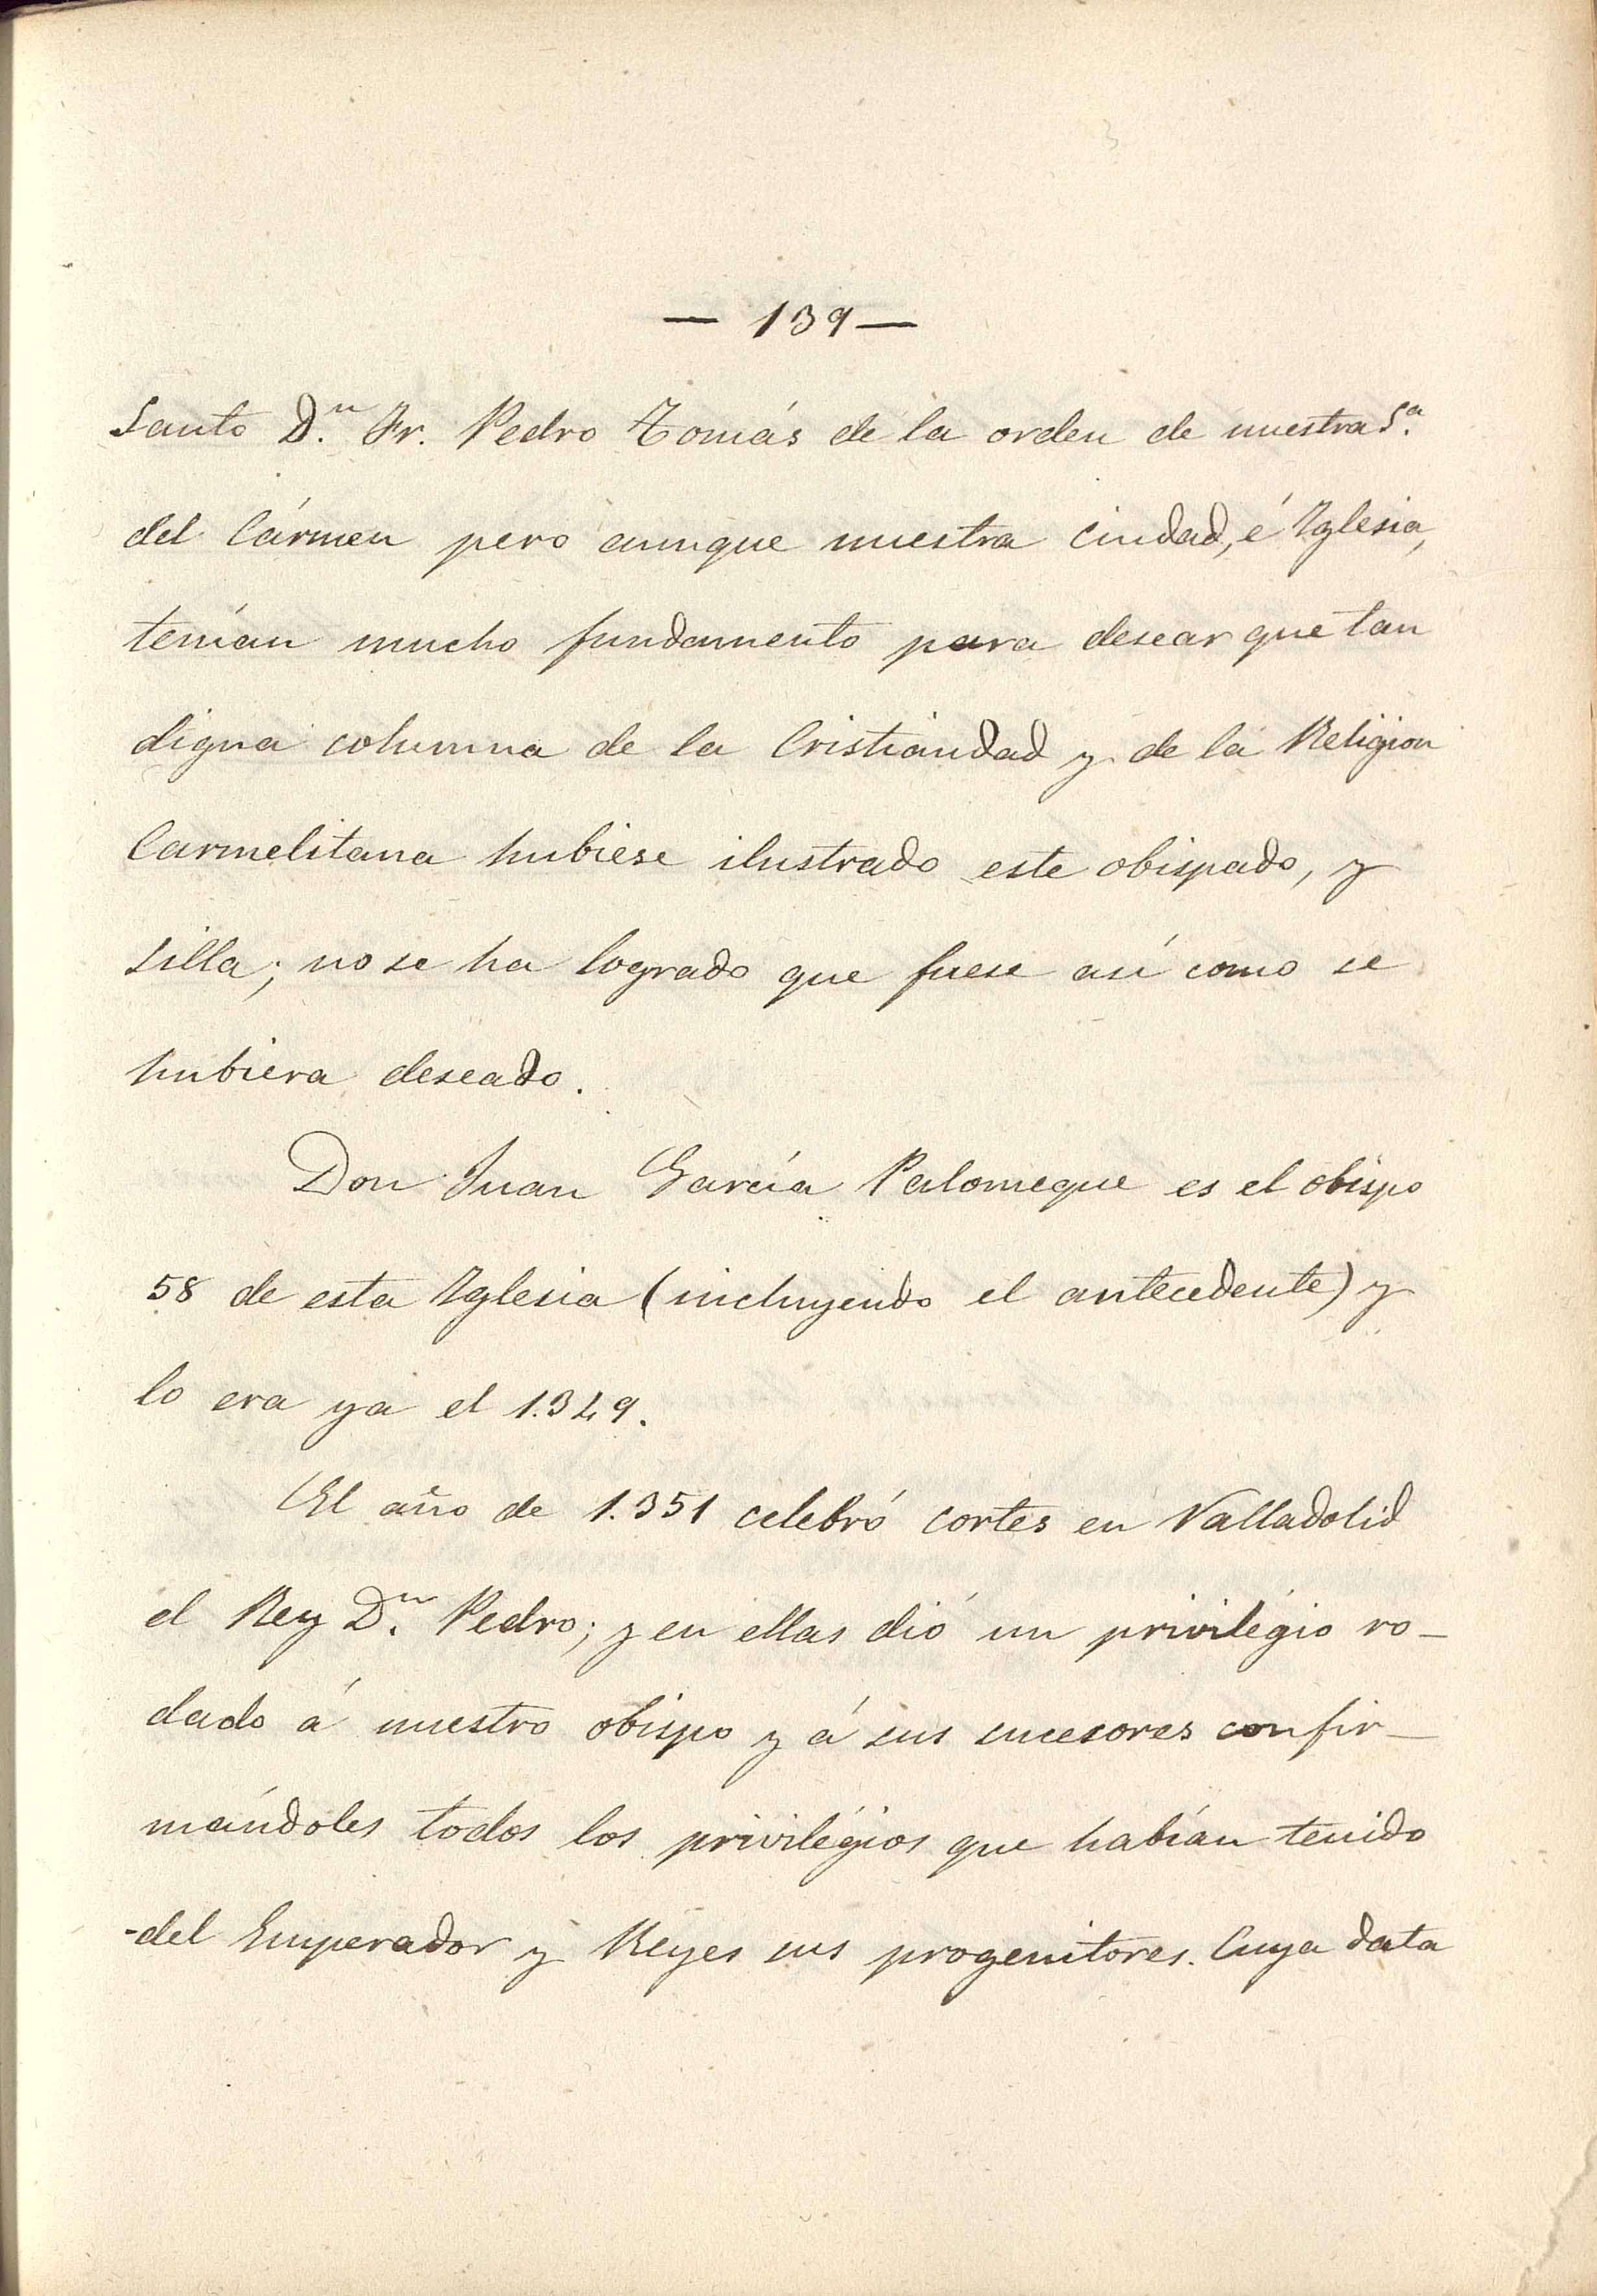 — 139 —
Santo D.ⁿ Fr. Pedro Tomás de la orden de nuestra S.ª
del Cármen pero aunque nuestra Ciudad, é Iglesia,
tenían mucho fundamento para desear que tan
digna columna de la Cristiandad y de la Religion
Carmelitana hubiese ilustrado este obispado, y
silla; no se ha logrado que fuese así como se
hubiera deseado.
Don Juan García Palomeque es el obispo
58 de esta Iglesia (incluyendo el antecedente) y
lo era ya el 1.349.
El año de 1.351 celebró cortes en Valladolid
el Rey D.ⁿ Pedro; y en ellas dió un privilégio ro-
dado á nuestro obispo y á sus sucesores confir-
mándoles todos los privilégios que habían tenido
-del Emperador y Reyes sus progenitores. Cuya data